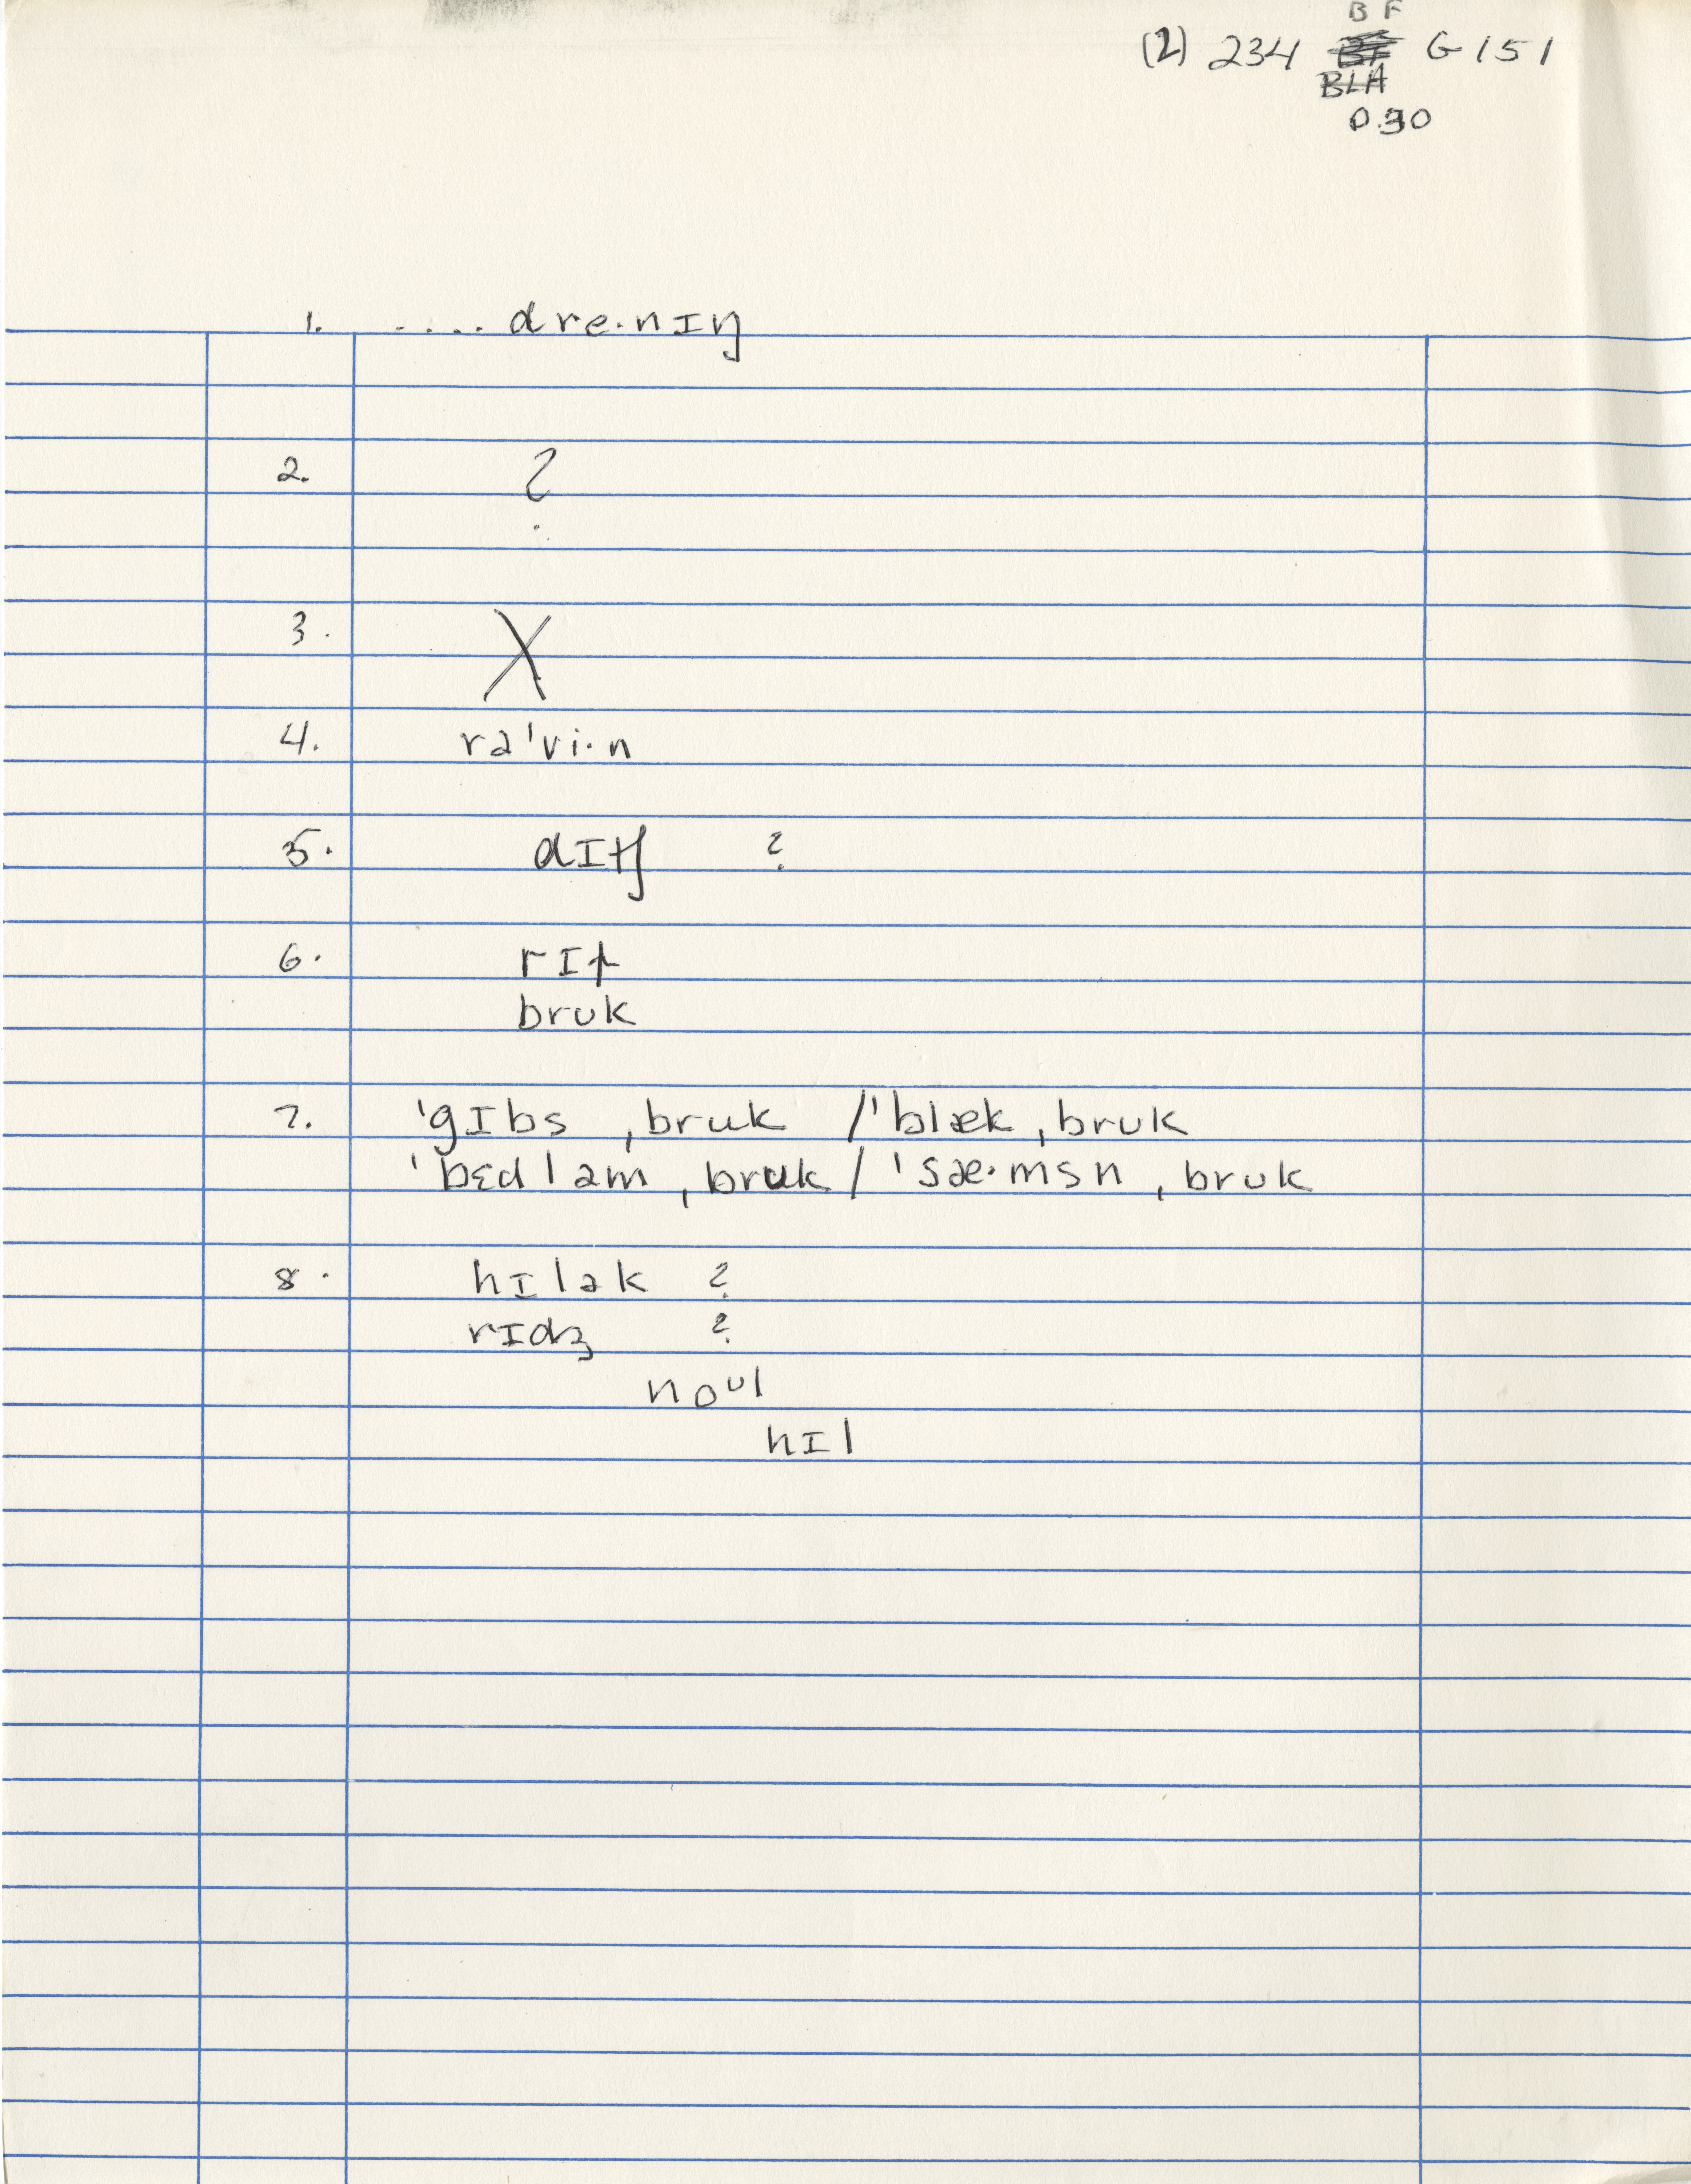 B F
(2) 234 G 151
BLA
0.30
1. .... dre·nɪŋ
2. ?
3. X
4. rə'vi·n
5. dɪtʃ ?
6. rɪf
bruk
7. 'gɪbs ˌbruk / 'blæk ˌbruk
'bɛdləm ˌbruk / 'sæ·msn ˌbruk
8. hɪlək ?
rɪdʒ ?
noᵘl
hɪl